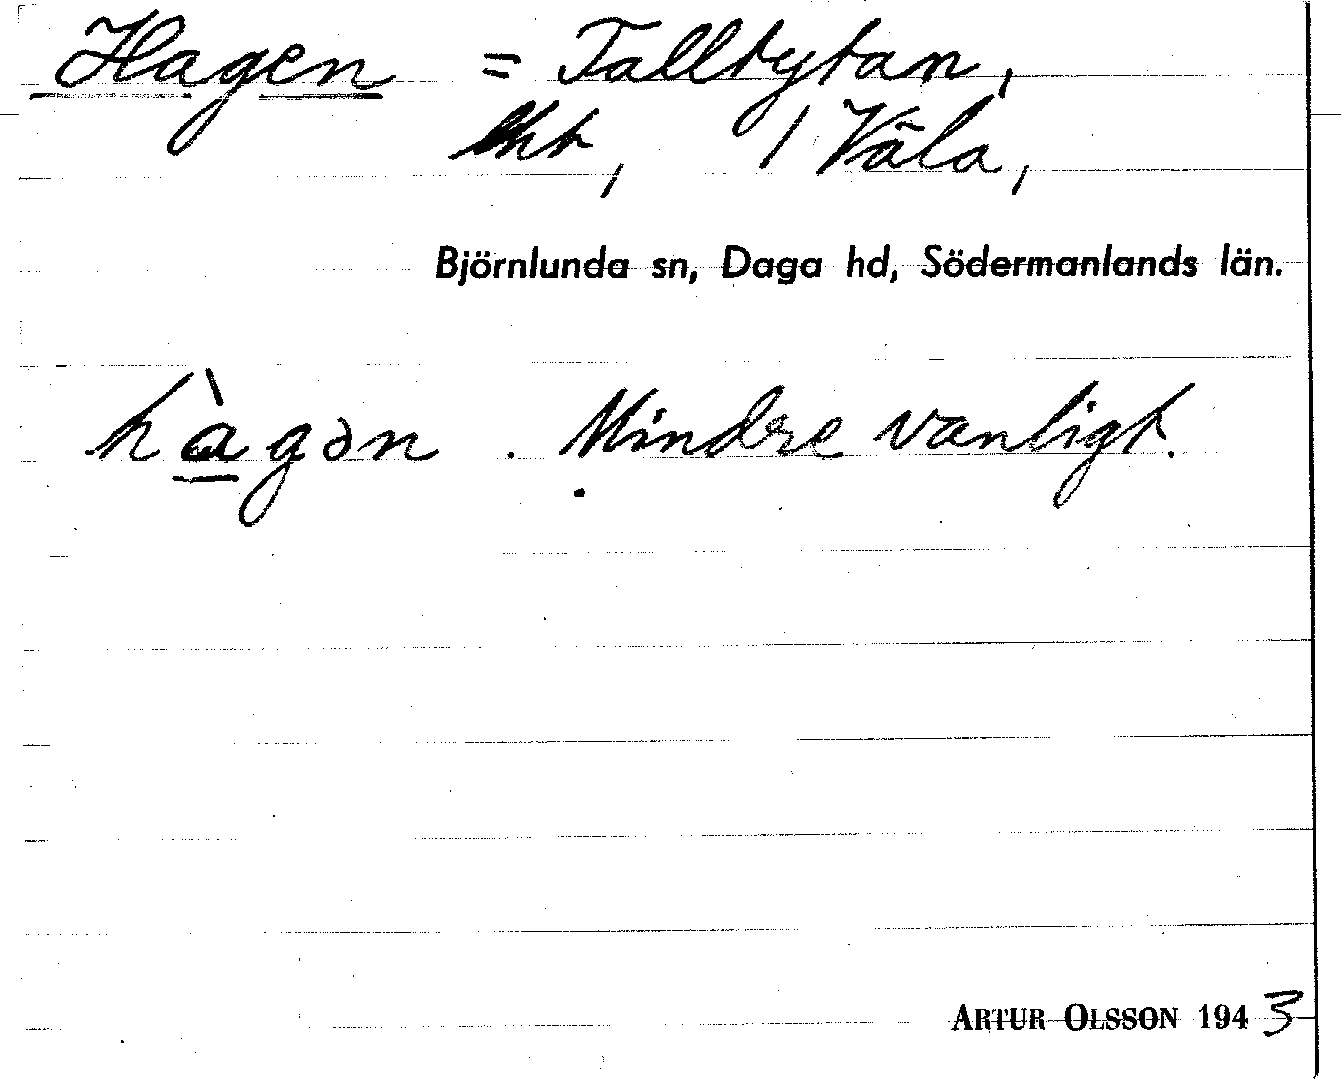 Hagen = Tallbytan,
lht, 1 Väla,
Björnlunda sn, Daga hd, Södermanlands län.
hàgən. Mindre vanligt.
ARTUR OLSSON 1943